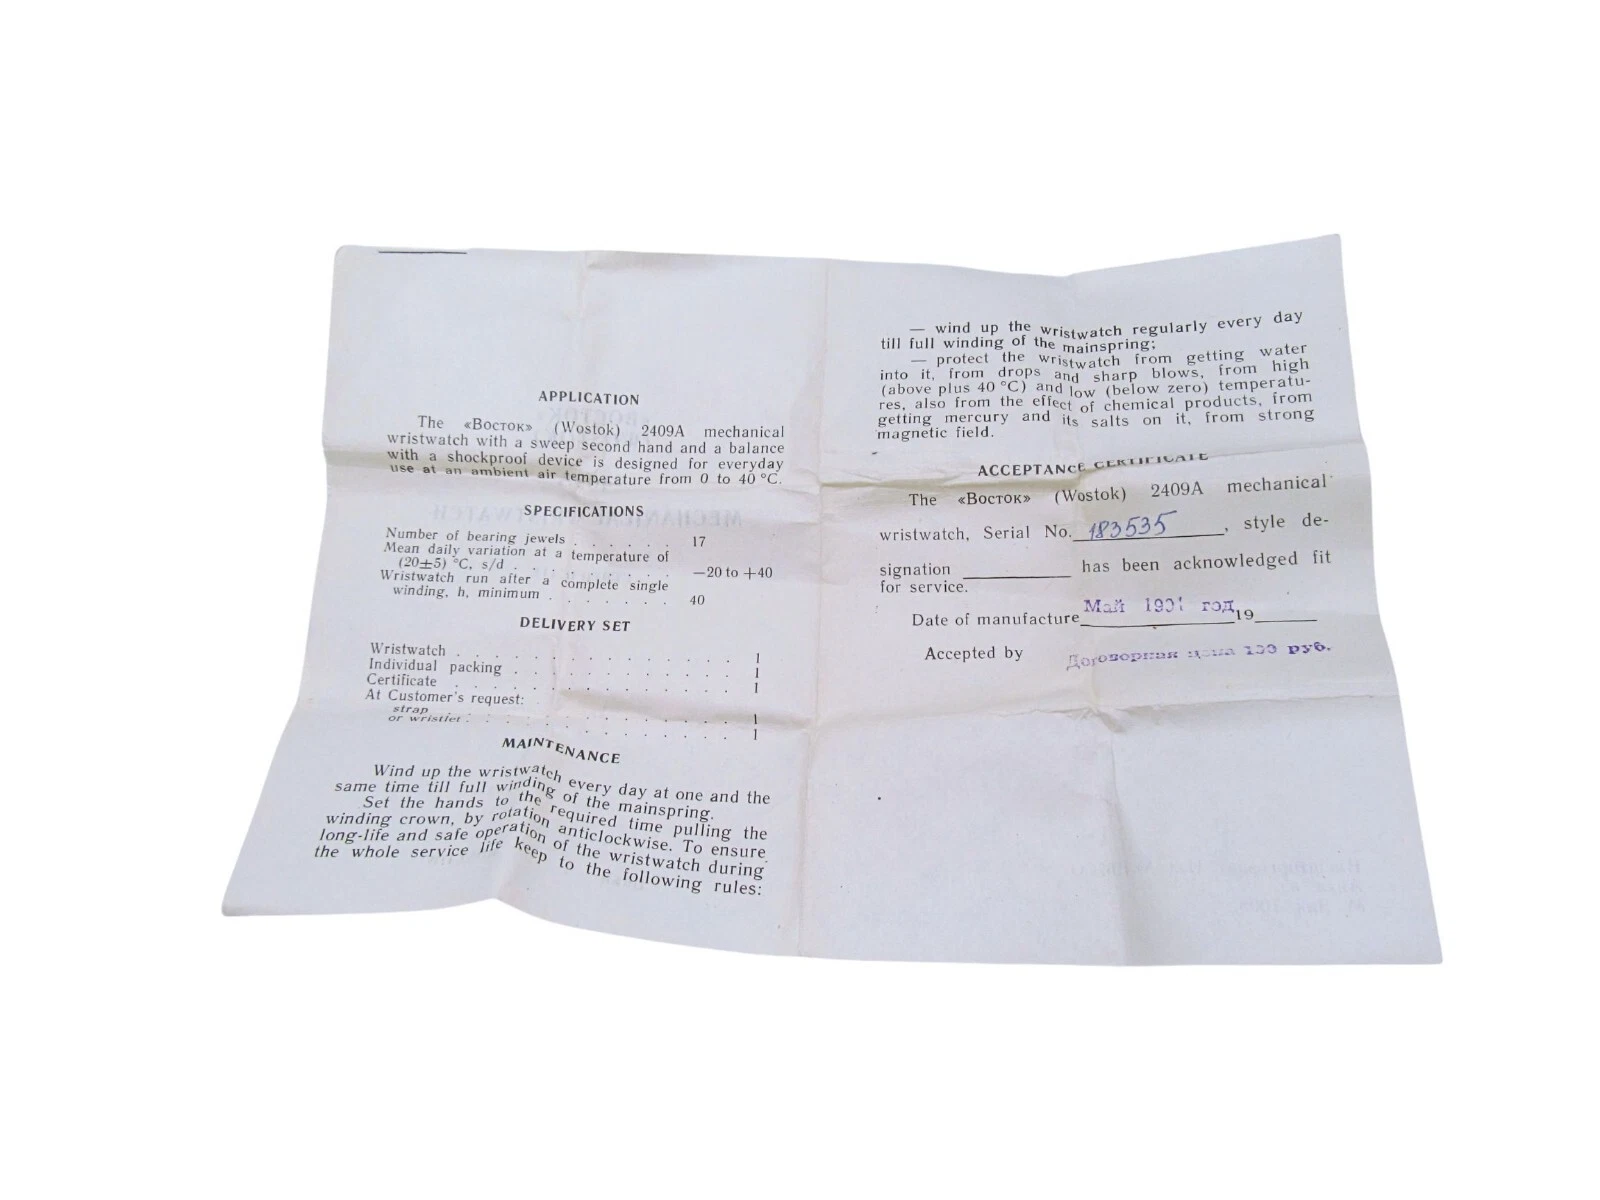 APPLICATION
The «Восток» (Wostok) 2409A mechanical
wristwatch with a sweep second hand and a balance
with a shockproof device is designed for everyday
use at an ambient air temperature from 0 to 40 °C.
SPECIFICATIONS
Number of bearing jewels . . . . . . 17
Mean daily variation at a temperature of
(20±5) °C, s/d . . . . . . . . . . —20 to +40
Wristwatch run after a complete single
winding, h, minimum . . . . . . . 40
DELIVERY SET
Wristwatch . . . . . . . . . . . . . . . 1
Individual packing . . . . . . . . . . . . 1
Certificate . . . . . . . . . . . . . . . 1
At Customer's request:
strap . . . . . . . . . . . . . . . 1
or wristlet . . . . . . . . . . . . . 1
MAINTENANCE
Wind up the wristwatch every day at one and the
same time till full winding of the mainspring.
Set the hands to the required time pulling the
winding crown, by rotation anticlockwise. To ensure
long-life and safe operation of the wristwatch during
the whole service life keep to the following rules:
— wind up the wristwatch regularly every day
till full winding of the mainspring;
— protect the wristwatch from getting water
into it, from drops and sharp blows, from high
(above plus 40 °C) and low (below zero) temperatu-
res, also from the effect of chemical products, from
getting mercury and its salts on it, from strong
magnetic field.
ACCEPTANCE CERTIFICATE
The «Восток» (Wostok) 2409A mechanical
wristwatch, Serial No. 183535, style de-
signation ________ has been acknowledged fit
for service.
Date of manufacture Май 1991 год 19____
Accepted by Договорная цена руб.